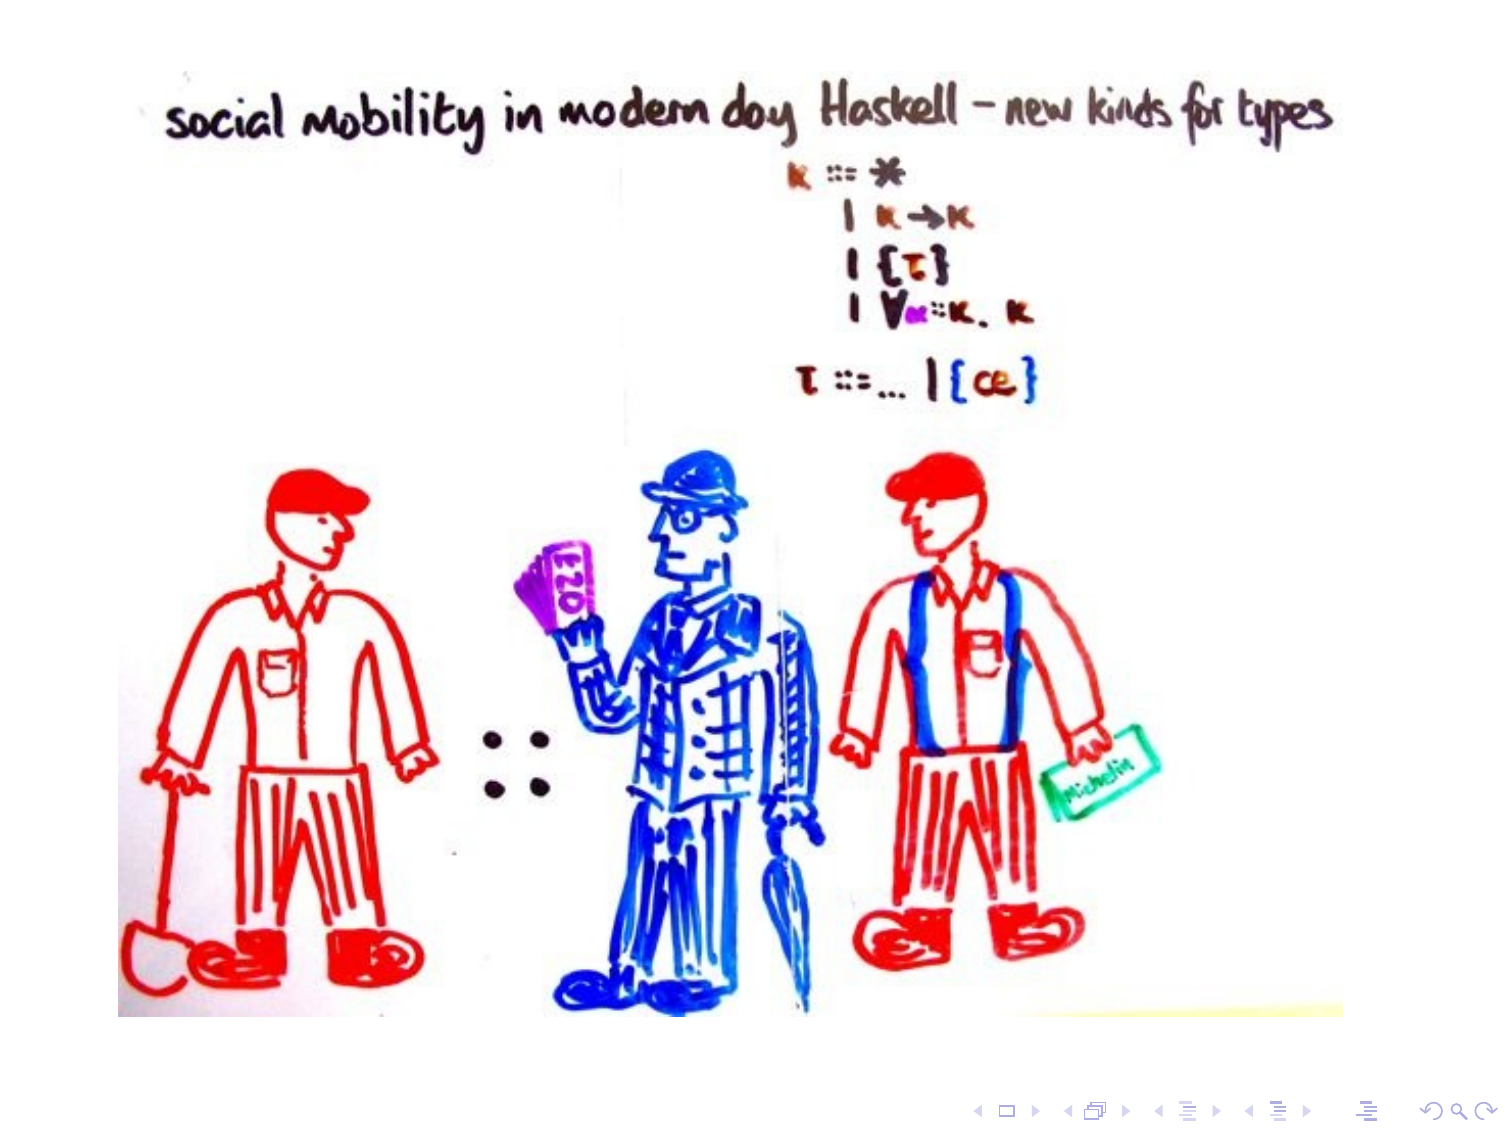 social mobility in modern day Haskell – new kinds for types
κ ::= *
| κ → κ
| {τ}
| ∀α::κ. κ
τ ::= ... | {ce}
£20
::
Michelin